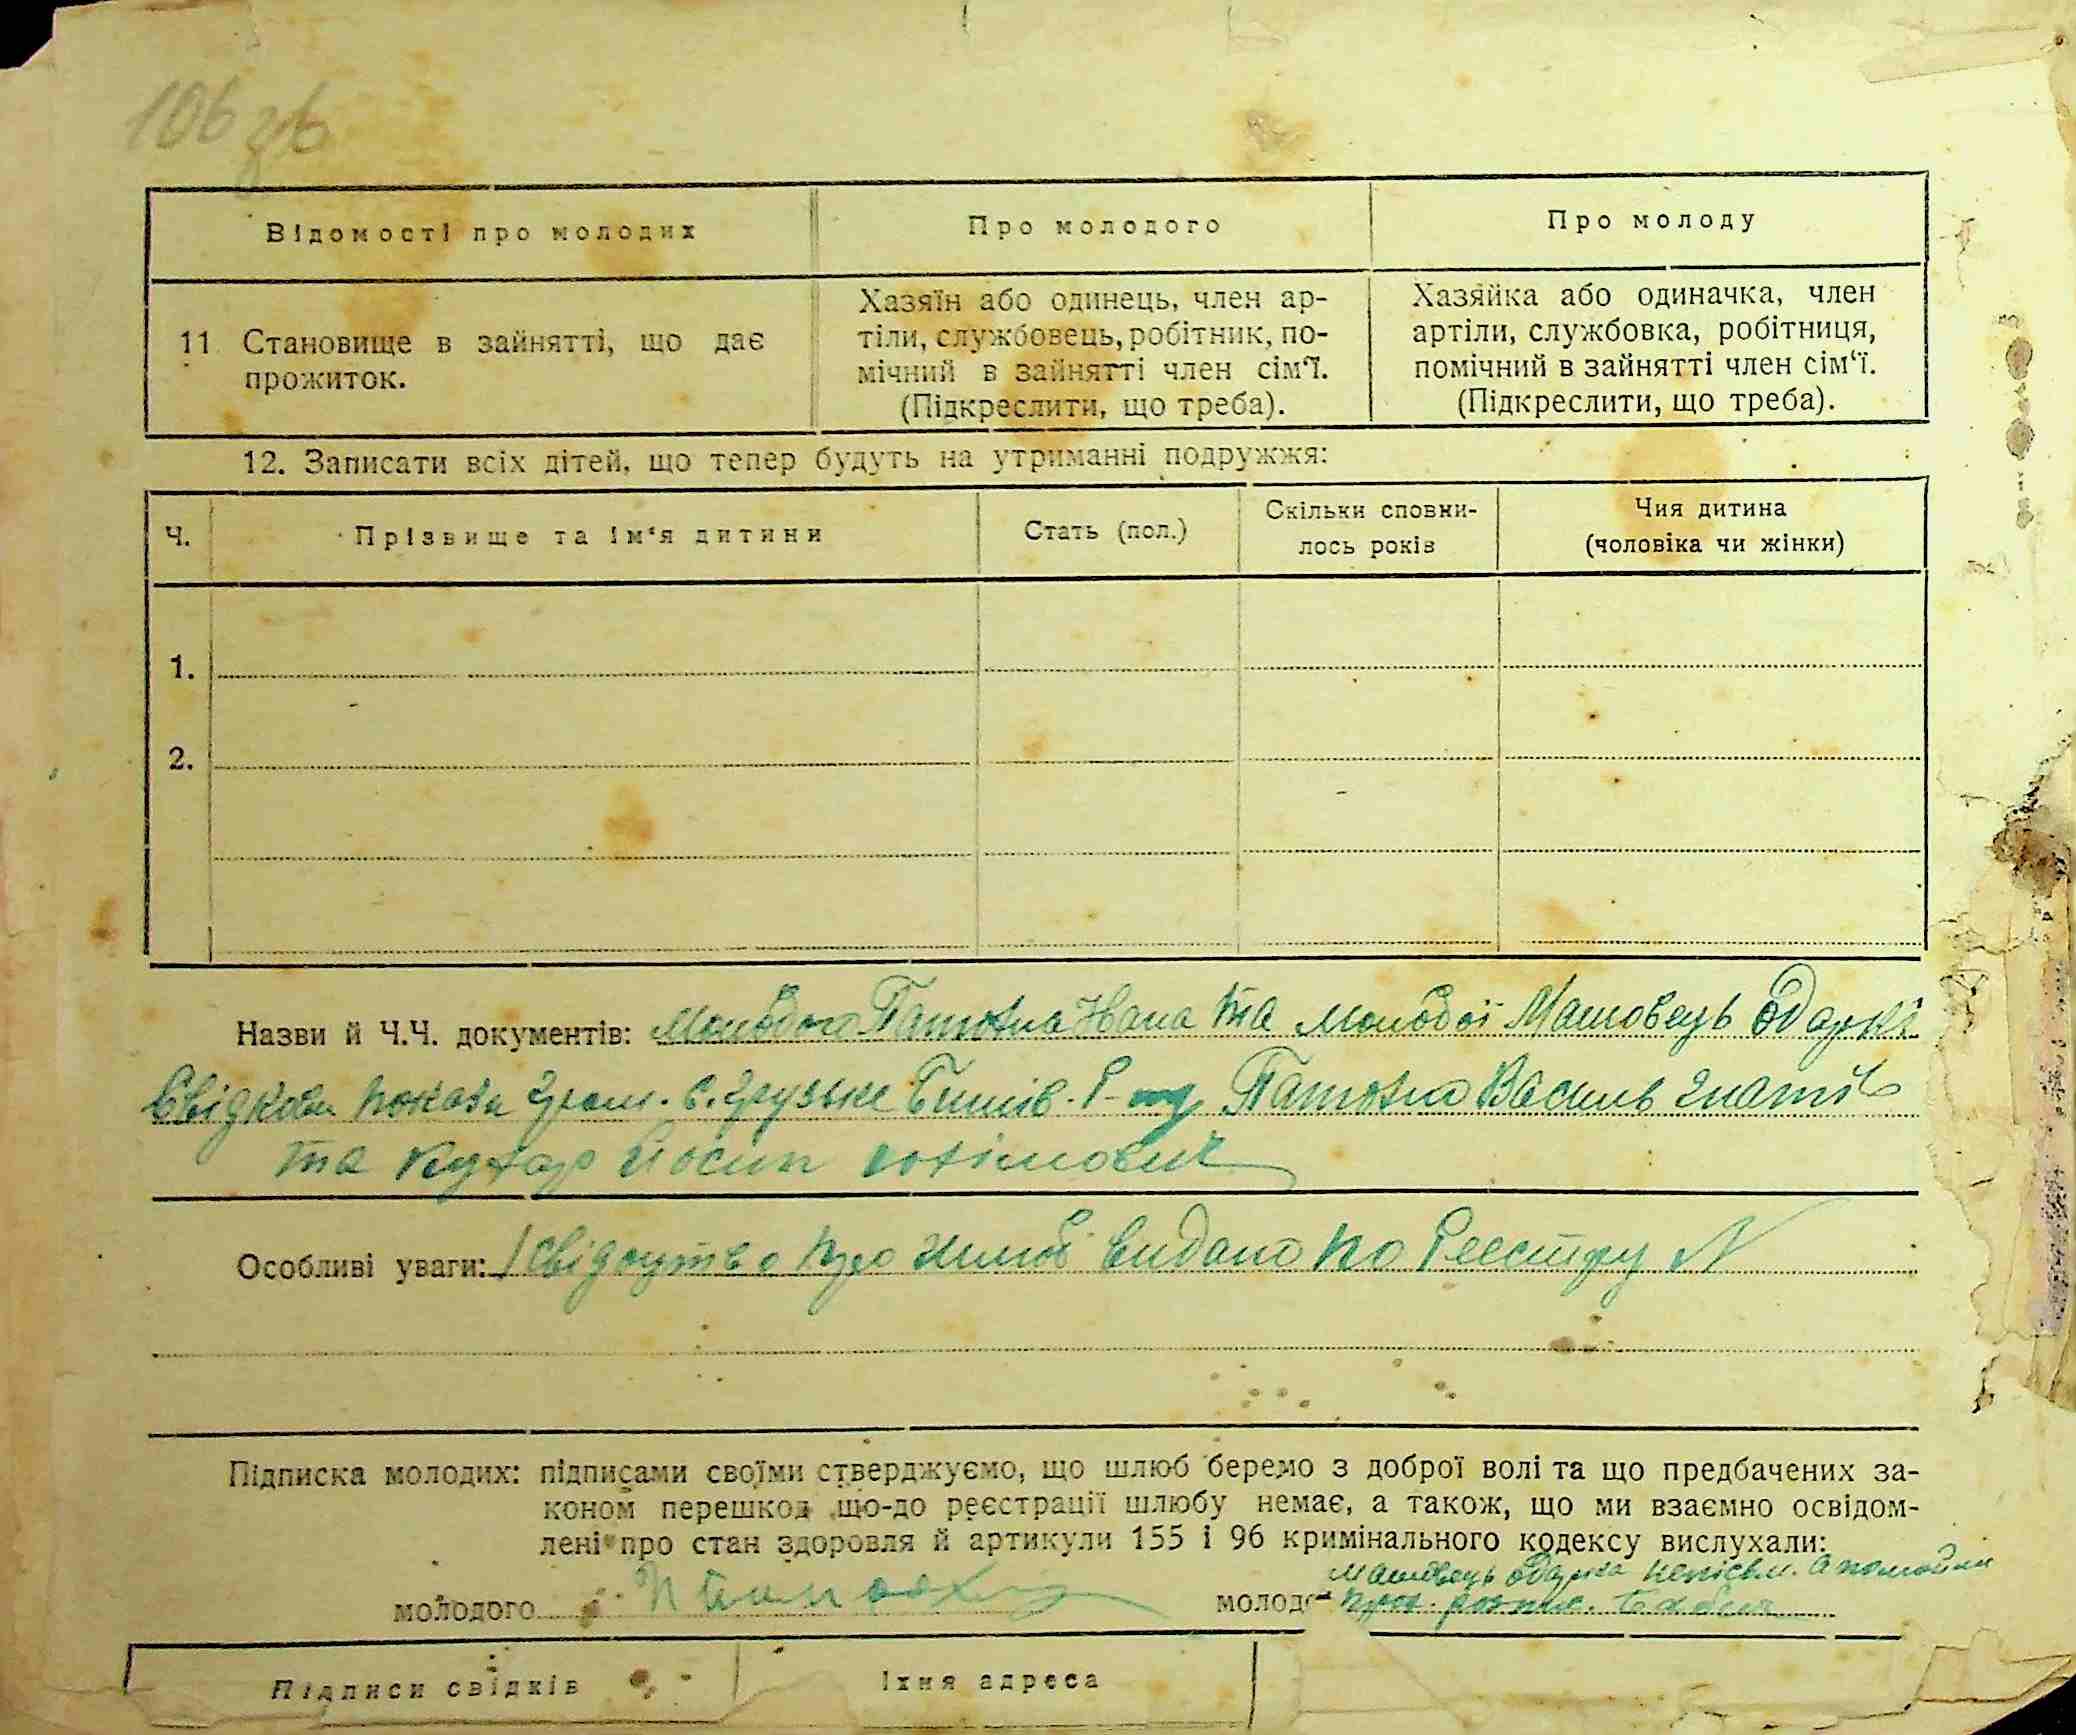 106 зв
Відомості про молодих
Про молодого
Про молоду
11 Становище в зайнятті, що дає
прожиток.
Хазяїн або одинець, член ар-
тіли, службовець, робітник, по-
мічний в зайнятті член сім'ї.
(Підкреслити, що треба).
Хазяйка або одиначка, член
артіли, службовка, робітниця,
помічний в зайнятті член сім'ї.
(Підкреслити, що треба).
12. Записати всіх дітей, що тепер будуть на утриманні подружжя:
Ч.
Прізвище та ім'я дитини
Стать (пол.)
Скільки сповни-
лось років
Чия дитина
(чоловіка чи жінки)
1.
2.
Назви й Ч.Ч. документів: Молодого Івана та молодої Машовець Одарки
Свідки гром. с. Грузьке Р-ну Василь Гнатів
та Кухар Йосип
Особливі уваги: Свідоцтво про шлюб видано по Реєстру N
Підписка молодих: підписами своїми стверджуємо, що шлюб беремо з доброї волі та що предбачених за-
коном перешкод що-до реєстрації шлюбу немає, а також, що ми взаємно освідом-
лені про стан здоровля й артикули 155 і 96 кримінального кодексу вислухали:
молодого
Машовець Одарка неписьм.
молодо
Підписи свідків
Їхня адреса